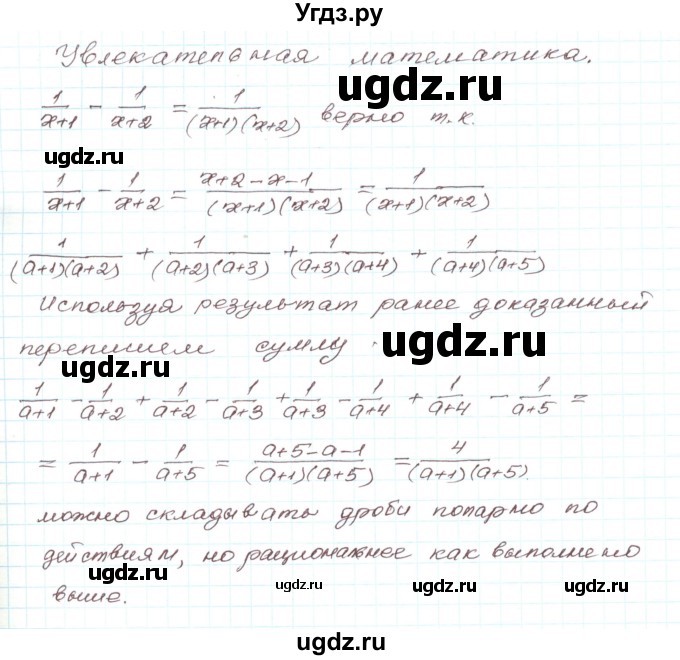 Угдз.ру
Увлекательная математика.
1/(x+1) − 1/(x+2) = 1/((x+1)(x+2)) верно т.к.
ugdz.ru
ugdz.ru
1/(x+1) − 1/(x+2) = (x+2−x−1)/((x+1)(x+2)) = 1/((x+1)(x+2))
1/((a+1)(a+2)) + 1/((a+2)(a+3)) + 1/((a+3)(a+4)) + 1/((a+4)(a+5))
Используя результат ранее доказанный
перепишем сумму
ugdz.ru
ugdz.ru
1/(a+1) − 1/(a+2) + 1/(a+2) − 1/(a+3) + 1/(a+3) − 1/(a+4) + 1/(a+4) − 1/(a+5) =
= 1/(a+1) − 1/(a+5) = (a+5−a−1)/((a+1)(a+5)) = 4/((a+1)(a+5)).
можно складывать дроби попарно по
действиям, но рациональнее как выполнено
выше.
ugdz.ru
ugdz.ru
ugdz.ru
ugdz.ru